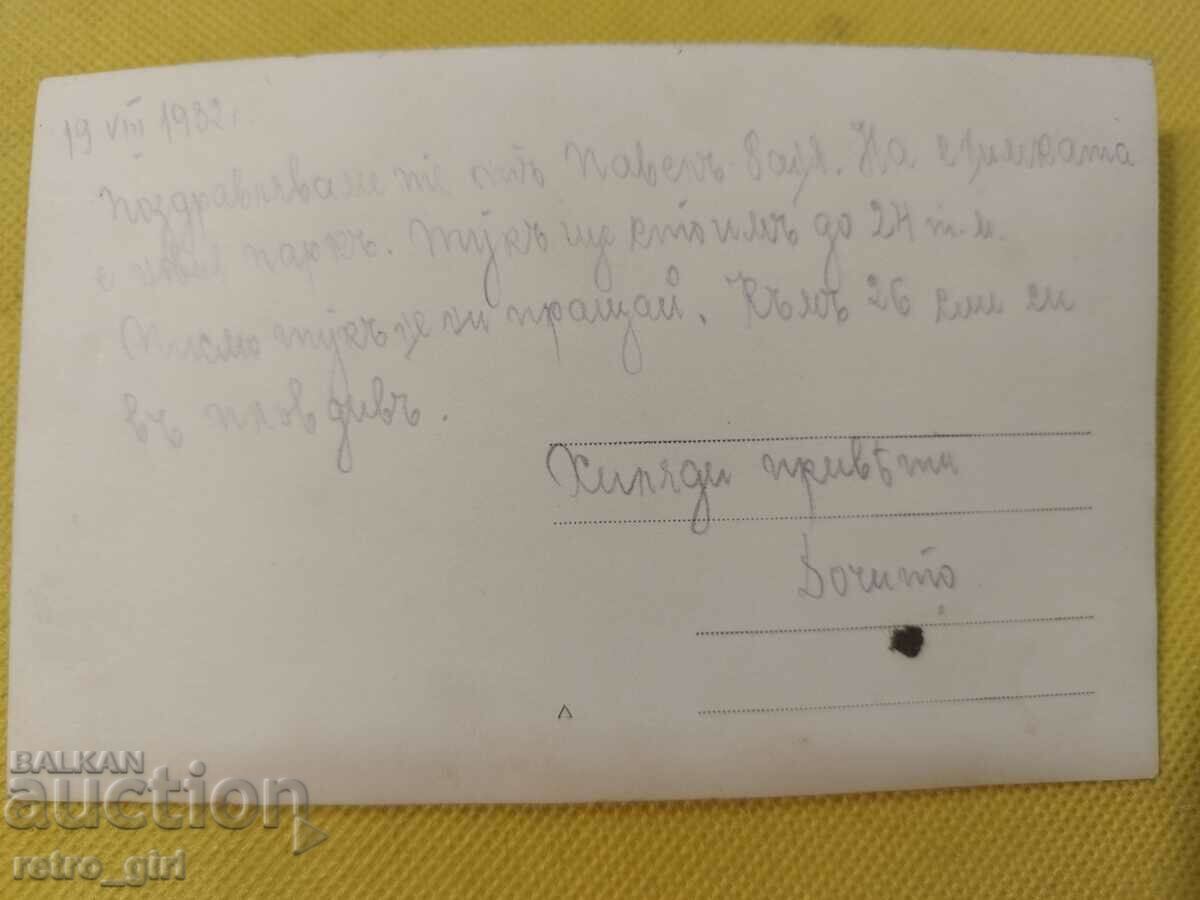 19 VIII 1932 г.
Поздравяваме те отъ Павелъ-баня. На снимката
е новия паркъ. Тукъ ще стоимъ до 24 т.м.
Писмо тукъ не ни пращай. Къмъ 26 сме си
въ Пловдивъ.
Хиляди привѣти
BALKAN
auction
retro_girl